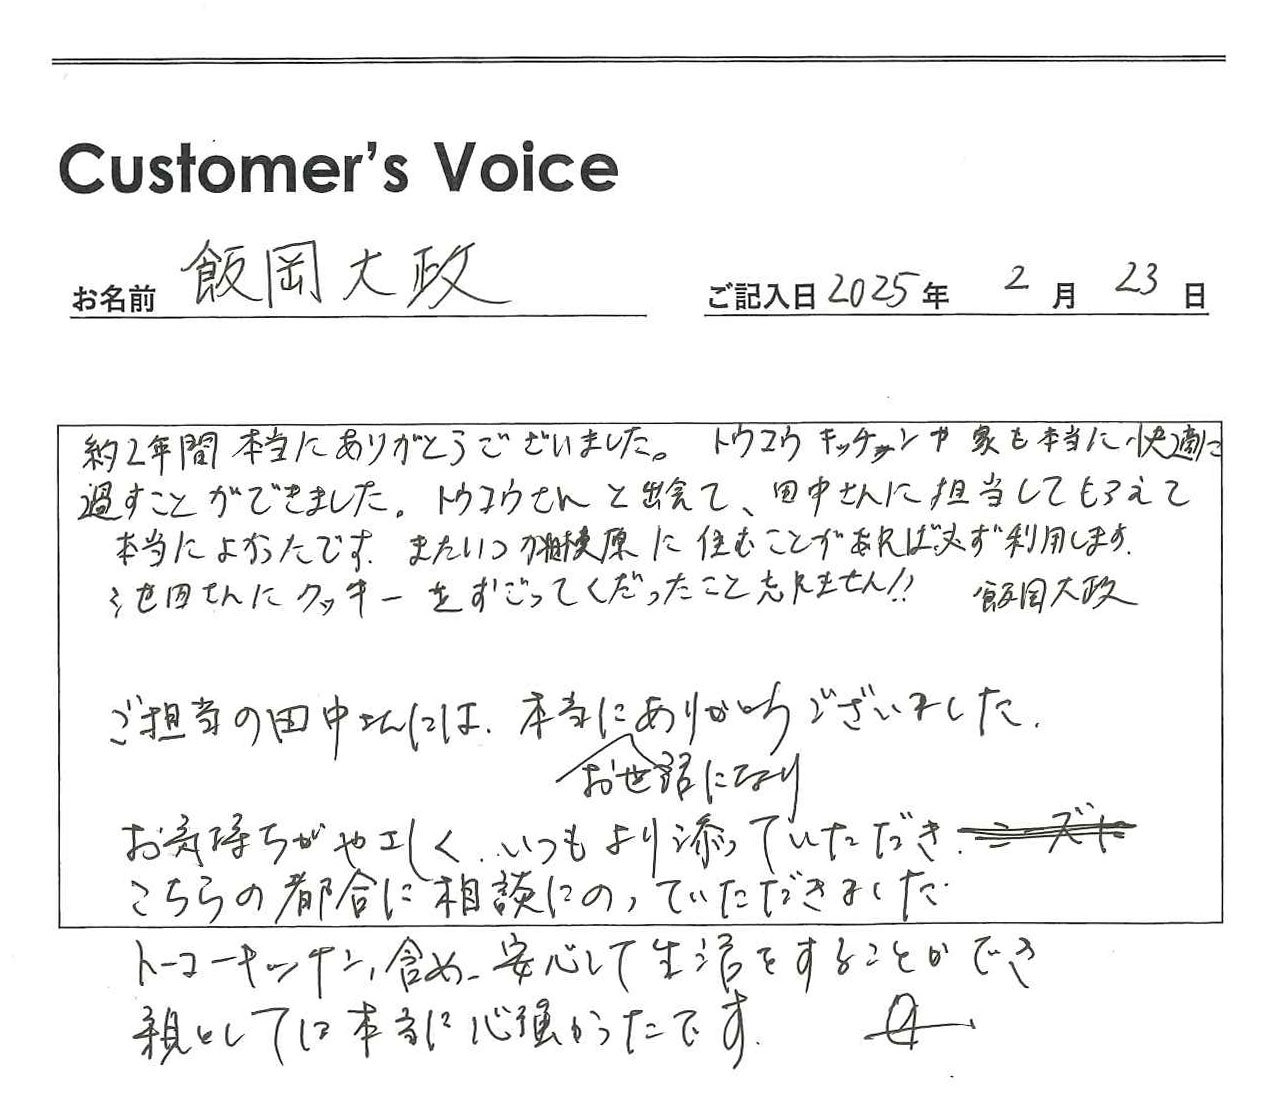 Customer's Voice
お名前 飯岡大政 ご記入日 2025年 2月 23日
約2年間本当にありがとうございました。トウコウキッチンや家も本当に快適に
過すことができました。トウコウさんと出会て、田中さんに担当してもらえて
本当によかったです。またいつか相模原に住むことがあれば必ず利用します。
池田さんにクッキーをすごってくだったこと忘れません!! 飯岡大政
ご担当の田中さんには、本当にありがとうございました。
お世話になり
お気持ちがやさしく、いつもより添っていただき、ニーズに
こちらの都合に相談にのっていただきました。
トーコーキッチン、含め、安心して生活をすることができ
親としては本当に心強かったです。 母